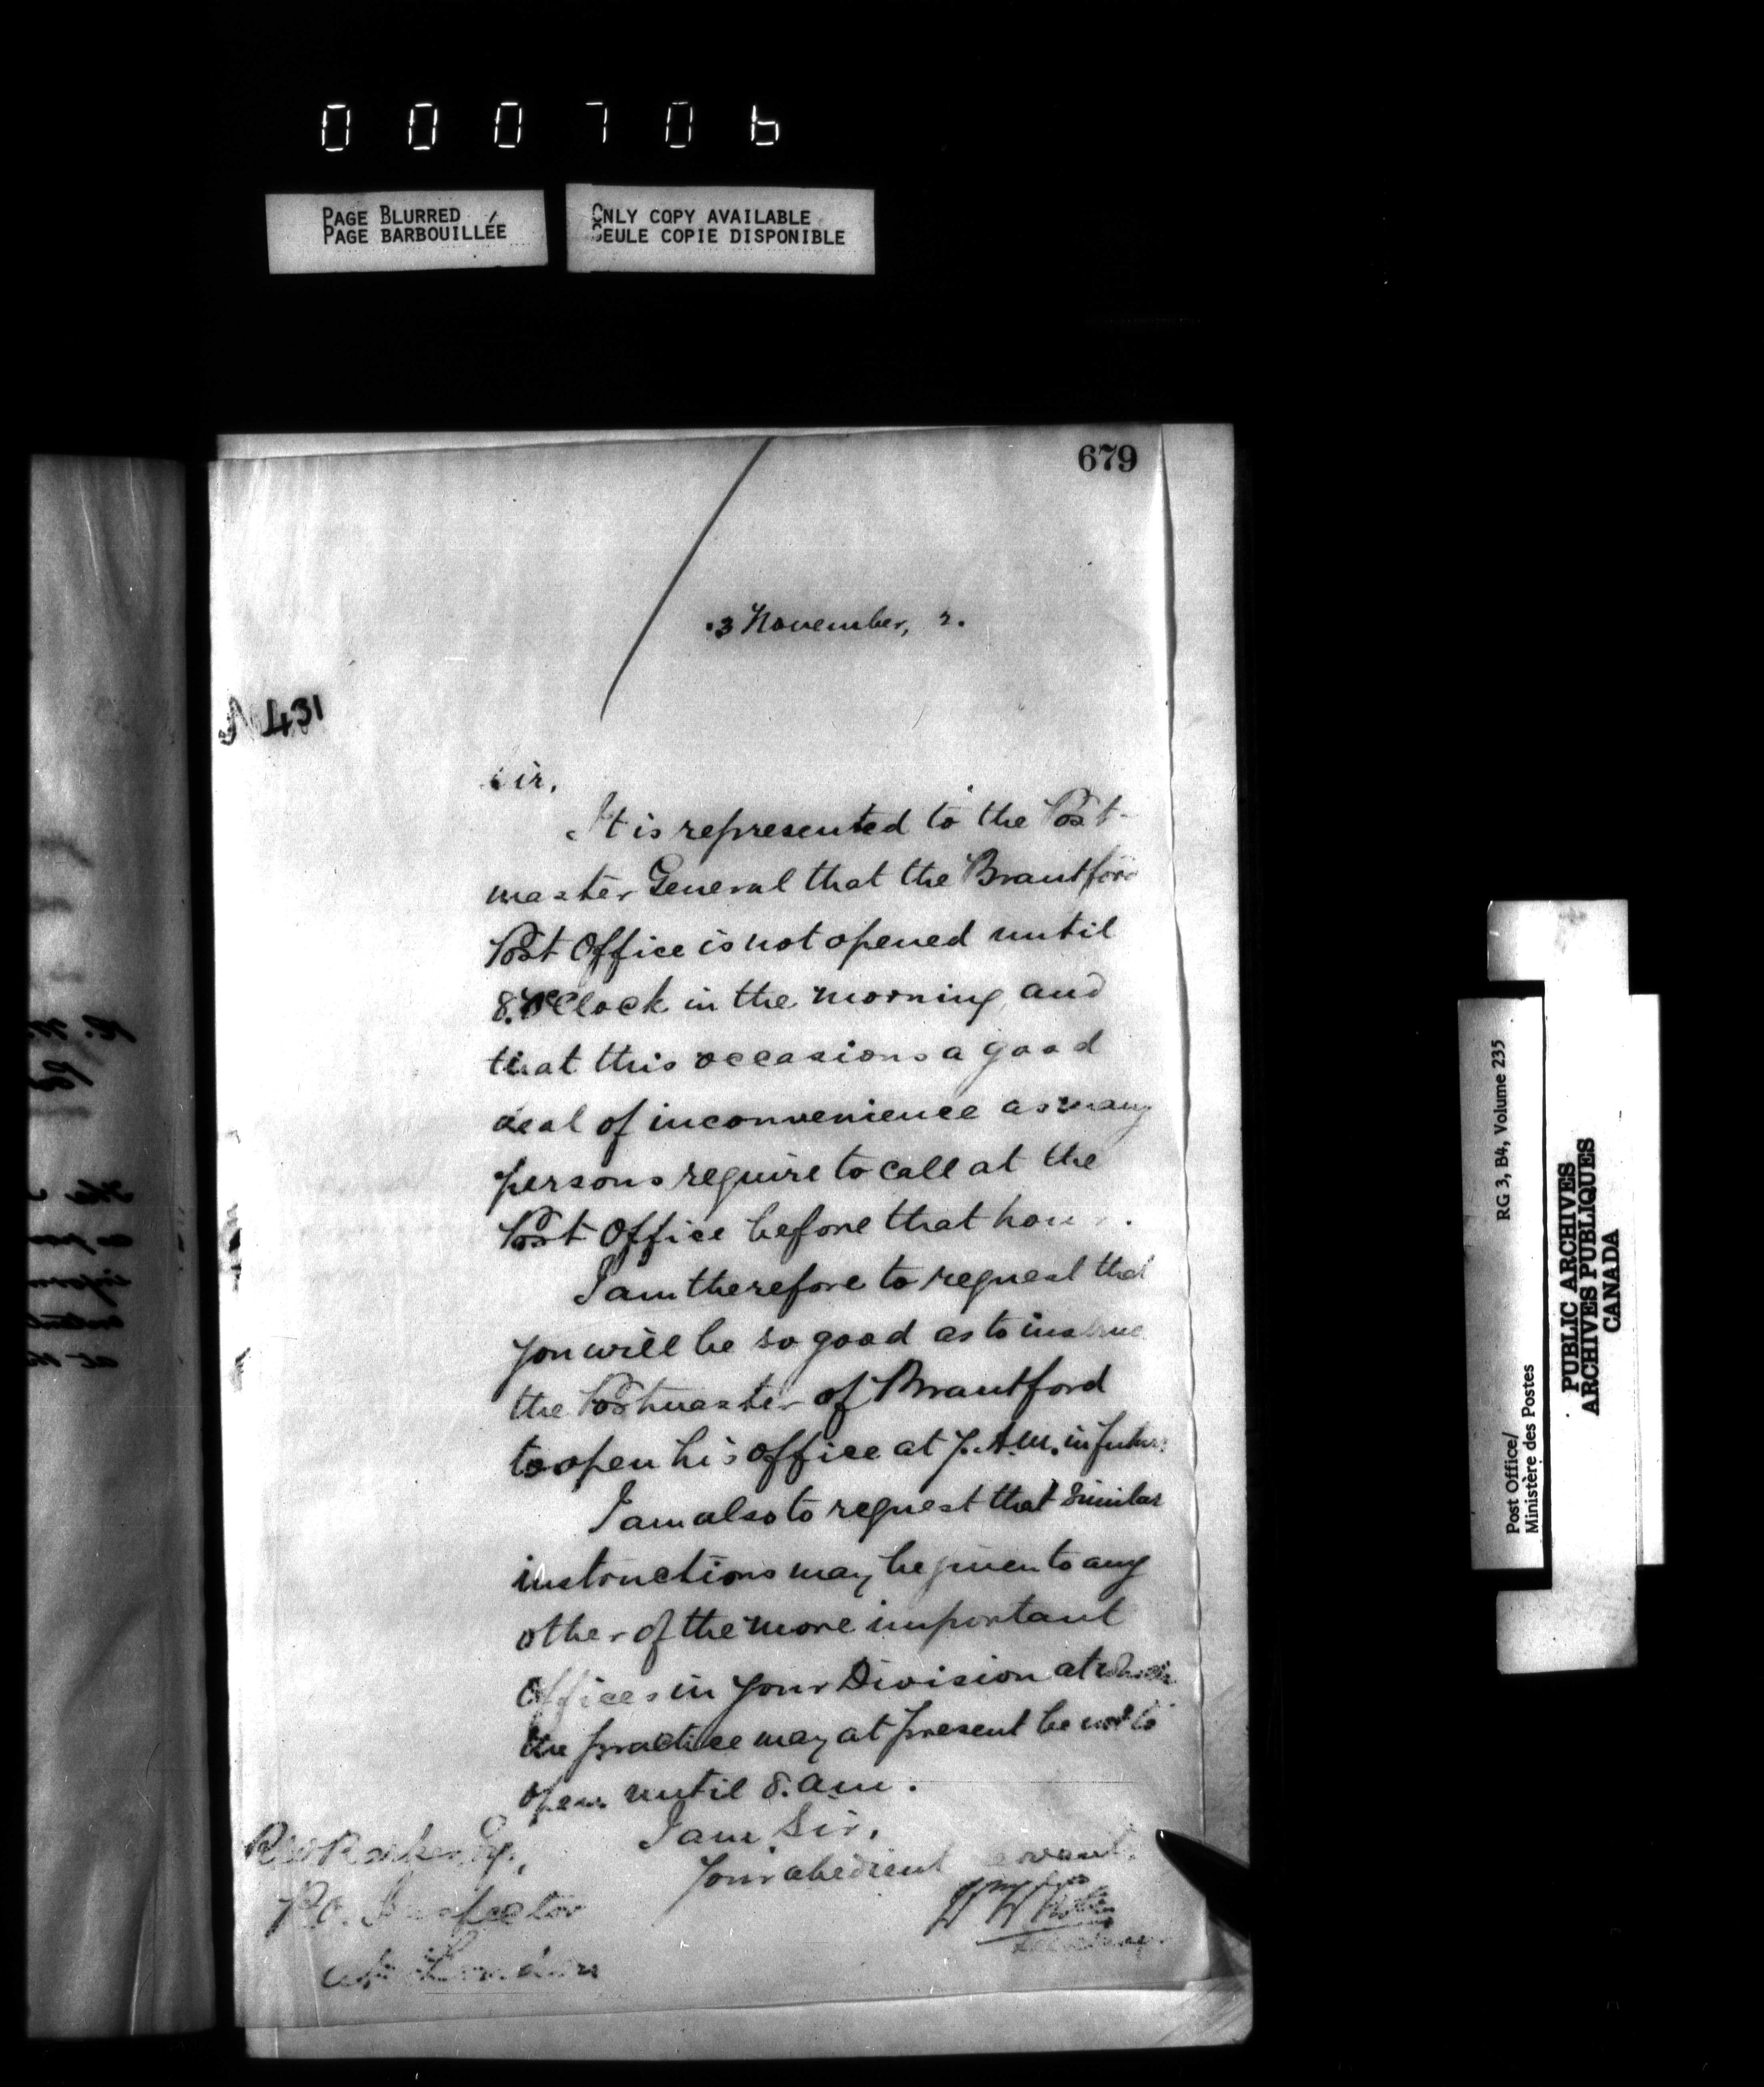 000706
PAGE BLURRED
PAGE BARBOUILLÉE
ONLY COPY AVAILABLE
SEULE COPIE DISPONIBLE
679
3 November, 2.
N 431
Sir,
It is represented to the Post-
master General that the Brantford
Post Office is not opened until
8. O'Clock in the morning and
that this occasions a good
deal of inconvenience as many
persons require to call at the
Post Office before that hour.
I am therefore to request that
you will be so good as to instruct
the Postmaster of Brantford
to open his office at 7. A.M. in future
I am also to request that similar
instructions may be given to any
other of the more important
Offices in your Division at which
the practice may at present be not to
open until 8. a.m.
I am, Sir,
Your obedient servant.
Wm White
Secretary.
R W Barker Esq.,
P.O. Inspector
London
RG 3, B4, Volume 235
Post Office/
Ministère des Postes
PUBLIC ARCHIVES
ARCHIVES PUBLIQUES
CANADA